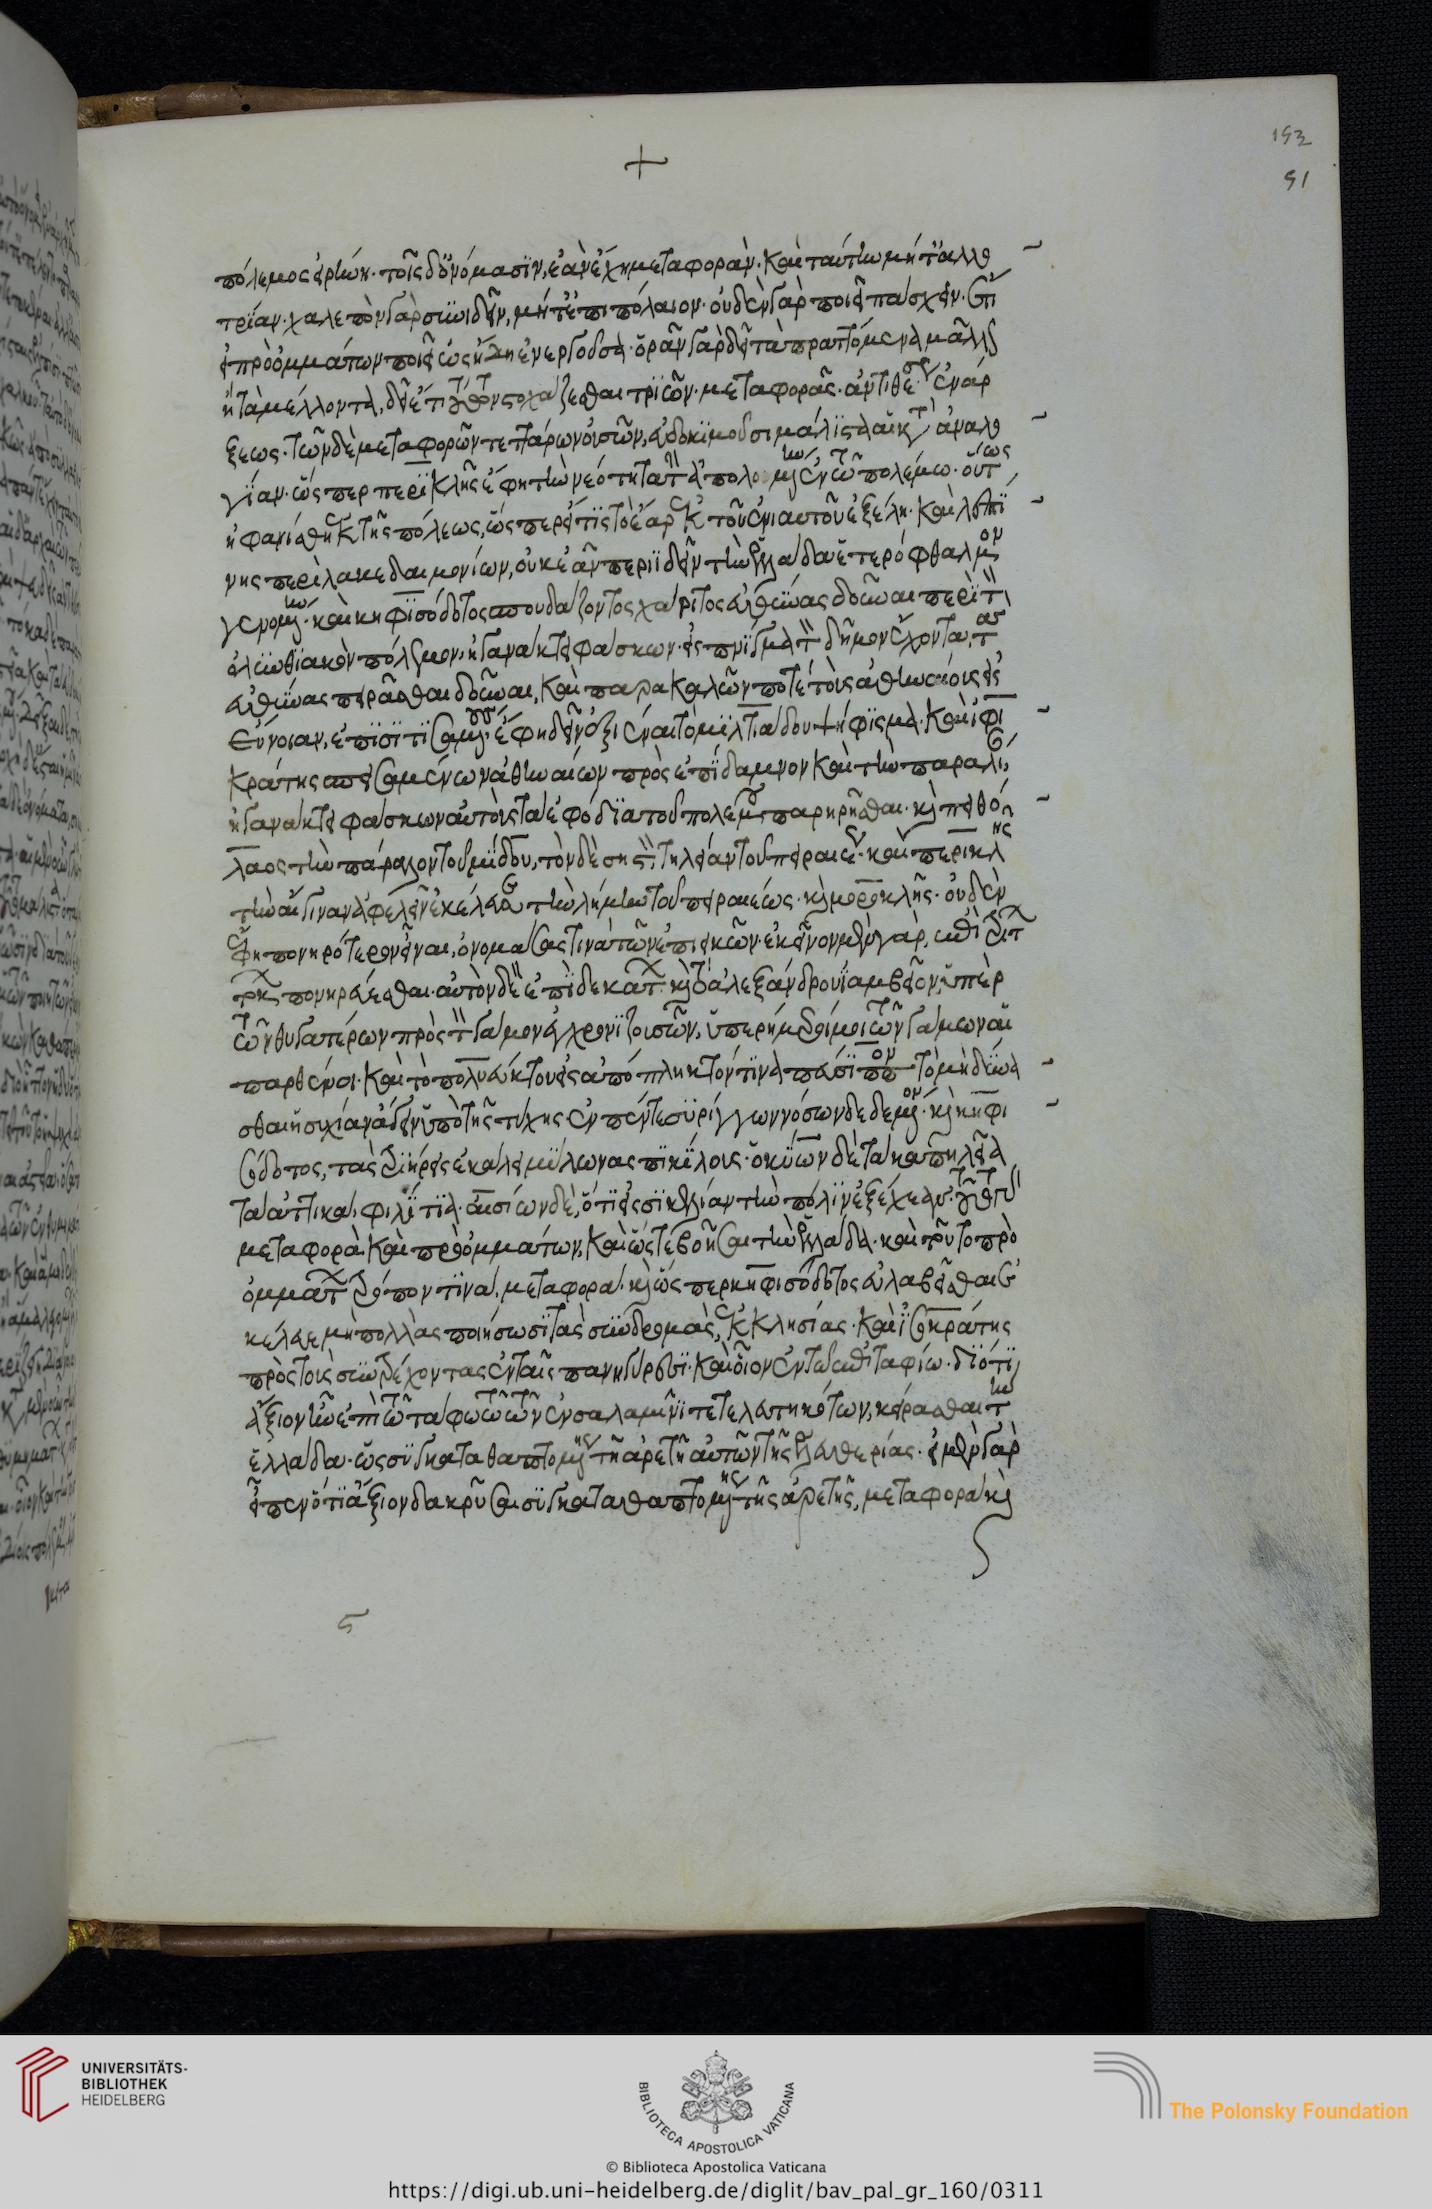 πόλεμος εἰρήνη. τοῖς δ' ὀνόμασϊν, ἐὰν ἔχη μεταφορὰν. καὶ ταύτην μήτ' ἀλλο
τρίαν. χαλεπὸν γὰρ συνιδεῖν, μήτ' ἐπιπόλαιον. οὐδὲν γὰρ ποιεῖ πάσχειν. ἔτι
εἰ πρὸ ὀμμάτων ποιεῖ ὡς ἤδη ἐνεργοῦσα. ὁρᾶν γὰρ δεῖ τὰ πραττόμενα μᾶλλον
ἢ τὰ μέλλοντα, δεῖ ἔτι τούτων στοχάζεσθαι τριῶν. μεταφορᾶς. ἀντιθέσεως ἐναρ
ξεως. τῶν δὲ μεταφορῶν τεττάρων οὐσῶν, εὐδοκιμοῦσι μάλιστα αἱ κατὰ ἀναλο
γίαν. ὥσπερ περικλῆς ἔφη τὴν νεότητα τὴν ἀπολομένην ἐν τῶ πολέμω. οὕτως
ἠφανίσθη ἐκ τῆς πόλεως, ὥσπερ εἴ τις τὸ ἔαρ ἐκ τοῦ ἐνιαυτοῦ ἐξέλη. καὶ λεπτί
νης περὶ λακεδαιμονίων, οὐκ ἐᾶν περιϊδεῖν τὴν ἑλλάδα ἑτερόφθαλμον
γενομένην. καὶ κηφισόδοτος σπουδάζοντος χάριτος εὐθύνας δοῦναι περὶ τὸν
ὀλυνθιακὸν πόλεμον. ἠγανάκτει φάσκων. εἰς πνῖγμα τὸν δῆμον ἔχοντα, τὰς
εὐθύνας πειρᾶσθαι δοῦναι, καὶ παρακαλῶν ποτὲ τοὺς ἀθηναίους εἰς
εὔνοιαν, ἐπισιτισαμένους ἔφη δεῖν ἐξιέναι τὸ μιλτιάδου ψήφισμα. καὶ ἰφι
κράτης σπεισαμένων ἀθηναίων πρὸς ἐπίδαμνον καὶ τὴν παραλίαν
ἠγανάκτει φάσκων αὐτοὺς τὰ ἐφόδια τοῦ πολέμου παρηρῆσθαι. καὶ πειθό
λαος τὴν πάραλον τοῦ μίδου, τὸν δὲ σηστὸν, τηλείαν τοῦ πειραιέως. καὶ περικλῆς
τὴν αἴγιναν ἀφελεῖν ἐκέλευσε τὴν λήμην τοῦ πειραιέως. καὶ μοροκλῆς. οὐδὲν
ἔφη πονηρότερον εἶναι, ὀνομάσας τινὰ τῶν ἐπιεικῶν. ἐκεῖνον μὲν γὰρ, ἐπὶ τρίτων
τόκων πονηρεύεσθαι. αὐτὸν δὲ ἐπὶ δεκάτων. καὶ τὸ ἀλεξανδρου ἰαμβεῖον, ὑπὲρ
τῶν θυγατέρων πρὸς τὸν γάμον ἐγχρονιζουσῶν, ὑπερήμεροί μοι τῶν γάμων αἱ
παρθένοι. καὶ τὸ πολυεύκτου εἰς ἀπόπληκτόν τινα πευσίππον τὸ μὴ δύνα
σθαι ἡσυχίαν ἄγειν ὑπὸ τῆς τύχης ἐν πεντεσυρίγγω νόσω δεδεμένον. καὶ κηφι
σόδοτος, τὰς τριήρεις ἐκάλει μύλωνας ποικίλους. ὁ κύων δὲ τὰ καπηλεῖα
τὰ ἀττικὰ. φιλίτια. αἰσίων δὲ, ὅτι εἰς σικελίαν τὴν πόλιν ἐξέχεαν. τοῦτο γὰρ
μεταφορὰ. καὶ πρὸ ὀμμάτων, καὶ ὥστε βοῆσαι τὴν ἑλλάδα. καὶ τοῦτο πρὸ
ὀμμάτων τρόπον τινα. μεταφορὰ. καὶ ὥσπερ κηφισόδοτος εὐλαβεῖσθαι ἐ
κέλευε, μὴ πολλὰς ποιήσωσι τὰς συνδρομὰς, ἐκκλησίας. καὶ ἰσοκράτης
πρὸς τοὺς συντρέχοντας ἐν ταῖς πανηγύρεσι. καὶ οἷον ἐν τῶ ἐπιταφίω. διότι
ἄξιον ἦν ἐπὶ τῶ τάφω τῶ τῶν ἐν σαλαμῖνι τετελευτηκότων, κείρασθαι τὴν
ἑλλάδα. ὡς συγκαταθαπτομένης τῆ ἀρετῆ αὐτῶν τῆς ἐλευθερίας. εἰ μὲν γὰρ
εἶπεν ὅτι ἄξιον δακρῦσαι συγκαταθαπτομένης τῆς ἀρετῆς, μεταφορὰ καὶ
UNIVERSITÄTS-
BIBLIOTHEK
HEIDELBERG
BIBLIOTECA APOSTOLICA VATICANA
The Polonsky Foundation
© Biblioteca Apostolica Vaticana
https://digi.ub.uni-heidelberg.de/diglit/bav_pal_gr_160/0311